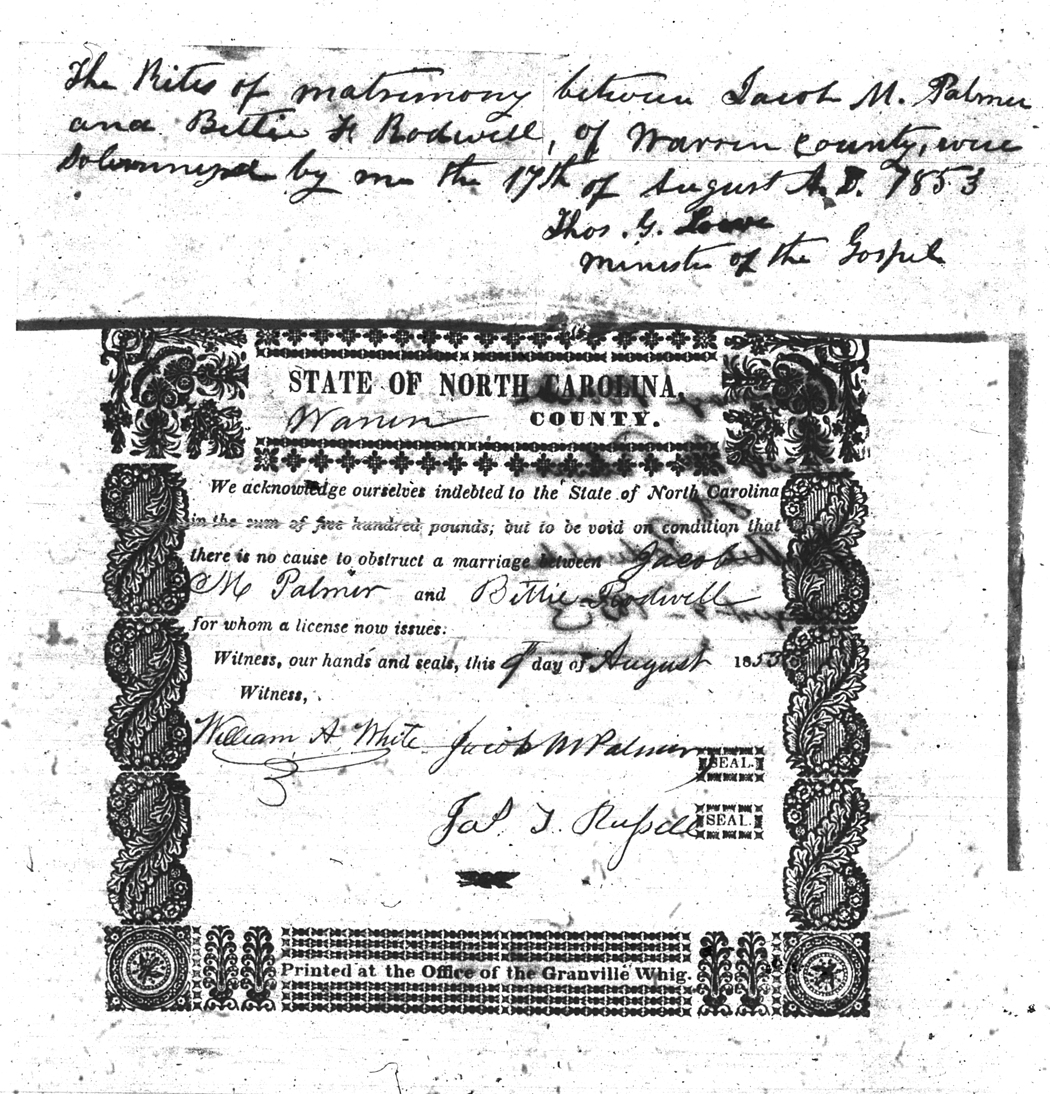 The Rites of matrimony between Jacob M. Palmer
and Bettie H Rodwell, of Warren County, were
Solemnized by me the 17th of August A.D. 1853
Thos. G. Lowe
Minister of the Gospel
STATE OF NORTH CAROLINA,
Warren COUNTY.
We acknowledge ourselves indebted to the State of North Carolina
in the sum of five hundred pounds; but to be void on condition that
there is no cause to obstruct a marriage between Jacob
M Palmer and Bettie Rodwell
for whom a license now issues.
Witness, our hands and seals, this 9th day of August 1853
Witness,
William A. White Jacob M Palmer SEAL.
Jas. T. Russell SEAL.
Printed at the Office of the Granville Whig.